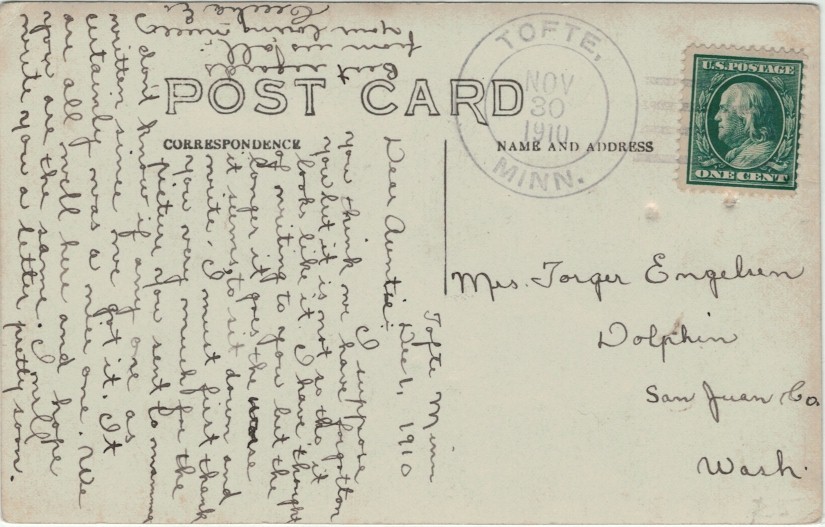 POST CARD
CORRESPONDENCE
NAME AND ADDRESS
TOFTE,
NOV
30
1910
MINN.
U.S.POSTAGE
ONE CENT
Mrs. Torger Engelsen
Dolphin
San Juan Co.
Wash.
Tofte Minn
Dec 1, 1910
Dear Auntie:
I suppose
you think we have forgotton
you but it is not so tho it
looks like it. I have thought
of writing to you but the
longer it goes the worse
it seems to sit down and
write. I must first thank
you very much for the
picture you sent to mamma
I don't know if any one as
written since we got it. It
certainly was a nice one. We
are all well here and hope
you are the same. I will
write you a letter pretty soon.
Best regards
from us all.
your loving niece
Cecilia E.